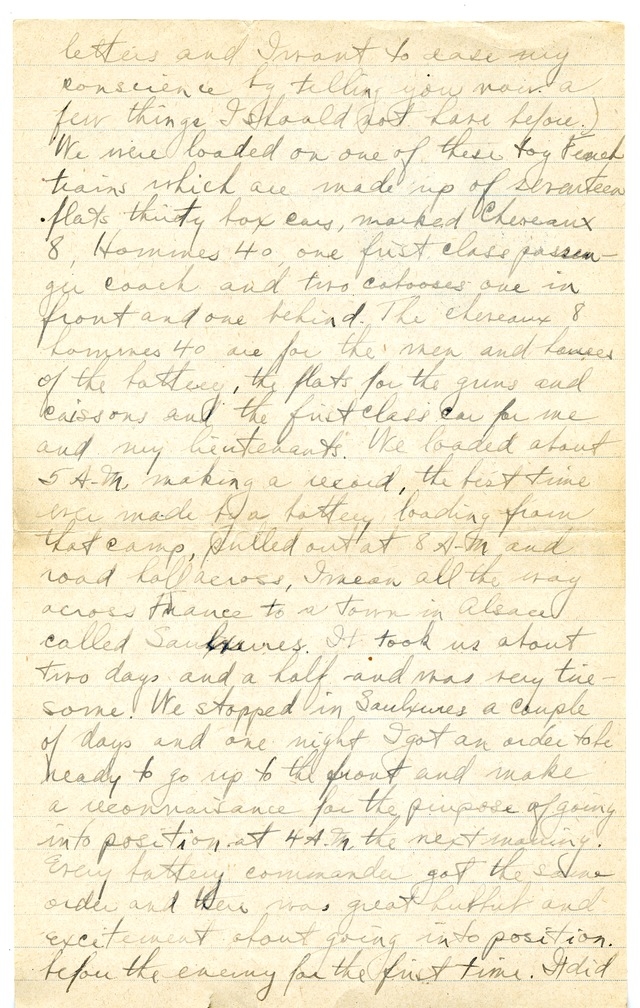 letters and I want to ease my
conscience by telling you now a
few things I should not have before.)
We were loaded on one of these toy French
trains which are made up of seventeen
flats thirty box cars, marked Chevaux
8, Hommes 40, one first class passen-
ger coach and two cabooses one in
front and one behind. The chevaux 8
hommes 40 are for the men and horses
of the battery, the flats for the guns and
caissons and the first class car for me
and my lieutenants. We loaded about
5 A.M. making a record, the best time
ever made by a battery loading from
that camp, pulled out at 8 A.M and
road half across, I mean all the way
across France to a town in Alsace
called Saulxures. It took us about
two days and a half and was very tire-
some. We stopped in Saulxures a couple
of days and one night I got an order to be
ready to go up to the front and make
a reconnaisance for the purpose of going
into position at 4 A.M. the next morning.
Every battery commander got the same
order and there was great hubbub and
excitement about going into position.
before the enemy for the first time. It did